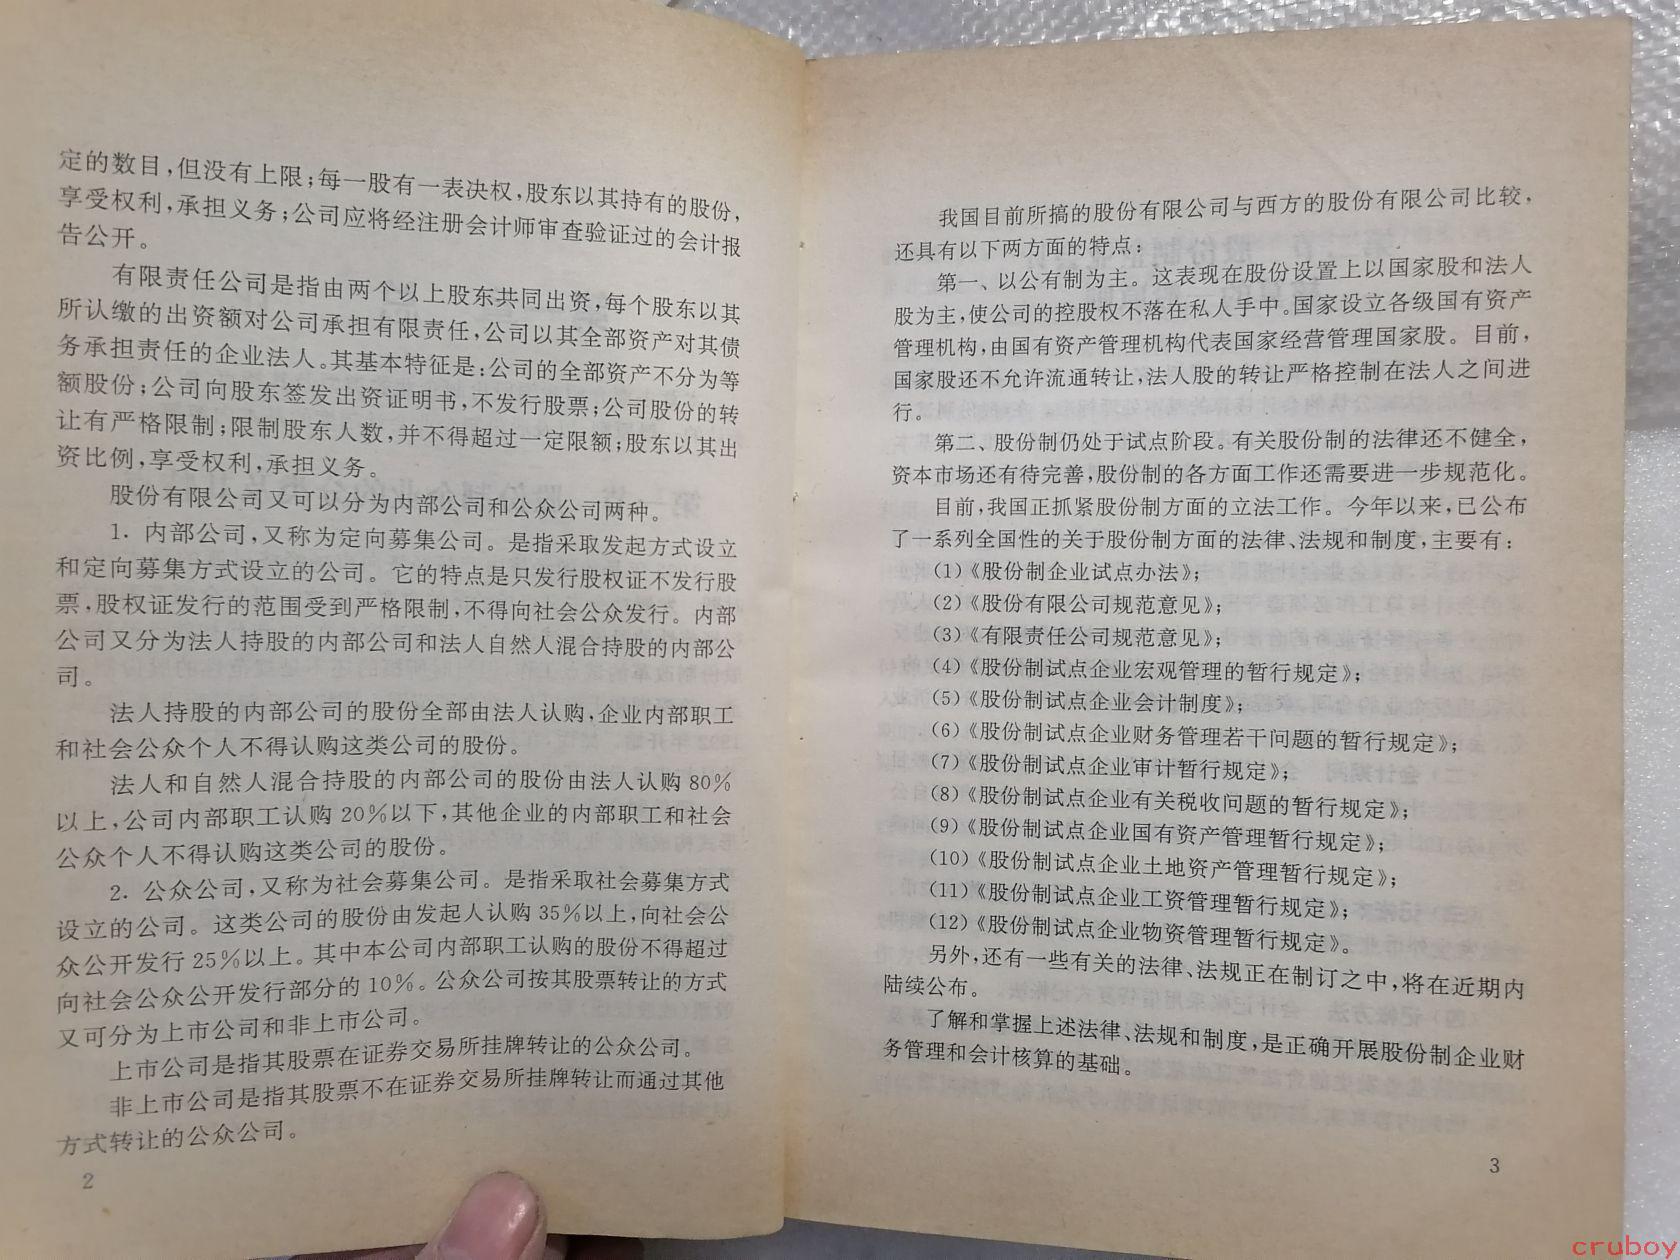 定的数目,但没有上限;每一股有一表决权,股东以其持有的股份,
享受权利,承担义务;公司应将经注册会计师审查验证过的会计报
告公开。
有限责任公司是指由两个以上股东共同出资,每个股东以其
所认缴的出资额对公司承担有限责任,公司以其全部资产对其债
务承担责任的企业法人。其基本特征是:公司的全部资产不分为等
额股份;公司向股东签发出资证明书,不发行股票;公司股份的转
让有严格限制;限制股东人数,并不得超过一定限额;股东以其出
资比例,享受权利,承担义务。
股份有限公司又可以分为内部公司和公众公司两种。
1. 内部公司,又称为定向募集公司。是指采取发起方式设立
和定向募集方式设立的公司。它的特点是只发行股权证不发行股
票,股权证发行的范围受到严格限制,不得向社会公众发行。内部
公司又分为法人持股的内部公司和法人自然人混合持股的内部公
司。
法人持股的内部公司的股份全部由法人认购,企业内部职工
和社会公众个人不得认购这类公司的股份。
法人和自然人混合持股的内部公司的股份由法人认购80%
以上,公司内部职工认购20%以下,其他企业的内部职工和社会
公众个人不得认购这类公司的股份。
2. 公众公司,又称为社会募集公司。是指采取社会募集方式
设立的公司。这类公司的股份由发起人认购35%以上,向社会公
众公开发行25%以上。其中本公司内部职工认购的股份不得超过
向社会公众公开发行部分的10%。公众公司按其股票转让的方式
又可分为上市公司和非上市公司。
上市公司是指其股票在证券交易所挂牌转让的公众公司。
非上市公司是指其股票不在证券交易所挂牌转让而通过其他
方式转让的公众公司。
2
我国目前所搞的股份有限公司与西方的股份有限公司比较,
还具有以下两方面的特点:
第一、以公有制为主。这表现在股份设置上以国家股和法人
股为主,使公司的控股权不落在私人手中。国家设立各级国有资产
管理机构,由国有资产管理机构代表国家经营管理国家股。目前,
国家股还不允许流通转让,法人股的转让严格控制在法人之间进
行。
第二、股份制仍处于试点阶段。有关股份制的法律还不健全,
资本市场还有待完善,股份制的各方面工作还需要进一步规范化。
目前,我国正抓紧股份制方面的立法工作。今年以来,已公布
了一系列全国性的关于股份制方面的法律、法规和制度,主要有:
(1)《股份制企业试点办法》;
(2)《股份有限公司规范意见》;
(3)《有限责任公司规范意见》;
(4)《股份制试点企业宏观管理的暂行规定》;
(5)《股份制试点企业会计制度》;
(6)《股份制试点企业财务管理若干问题的暂行规定》;
(7)《股份制试点企业审计暂行规定》;
(8)《股份制试点企业有关税收问题的暂行规定》;
(9)《股份制试点企业国有资产管理暂行规定》;
(10)《股份制试点企业土地资产管理暂行规定》;
(11)《股份制试点企业工资管理暂行规定》;
(12)《股份制试点企业物资管理暂行规定》。
另外,还有一些有关的法律、法规正在制订之中,将在近期内
陆续公布。
了解和掌握上述法律、法规和制度,是正确开展股份制企业财
务管理和会计核算的基础。
3
cruboy